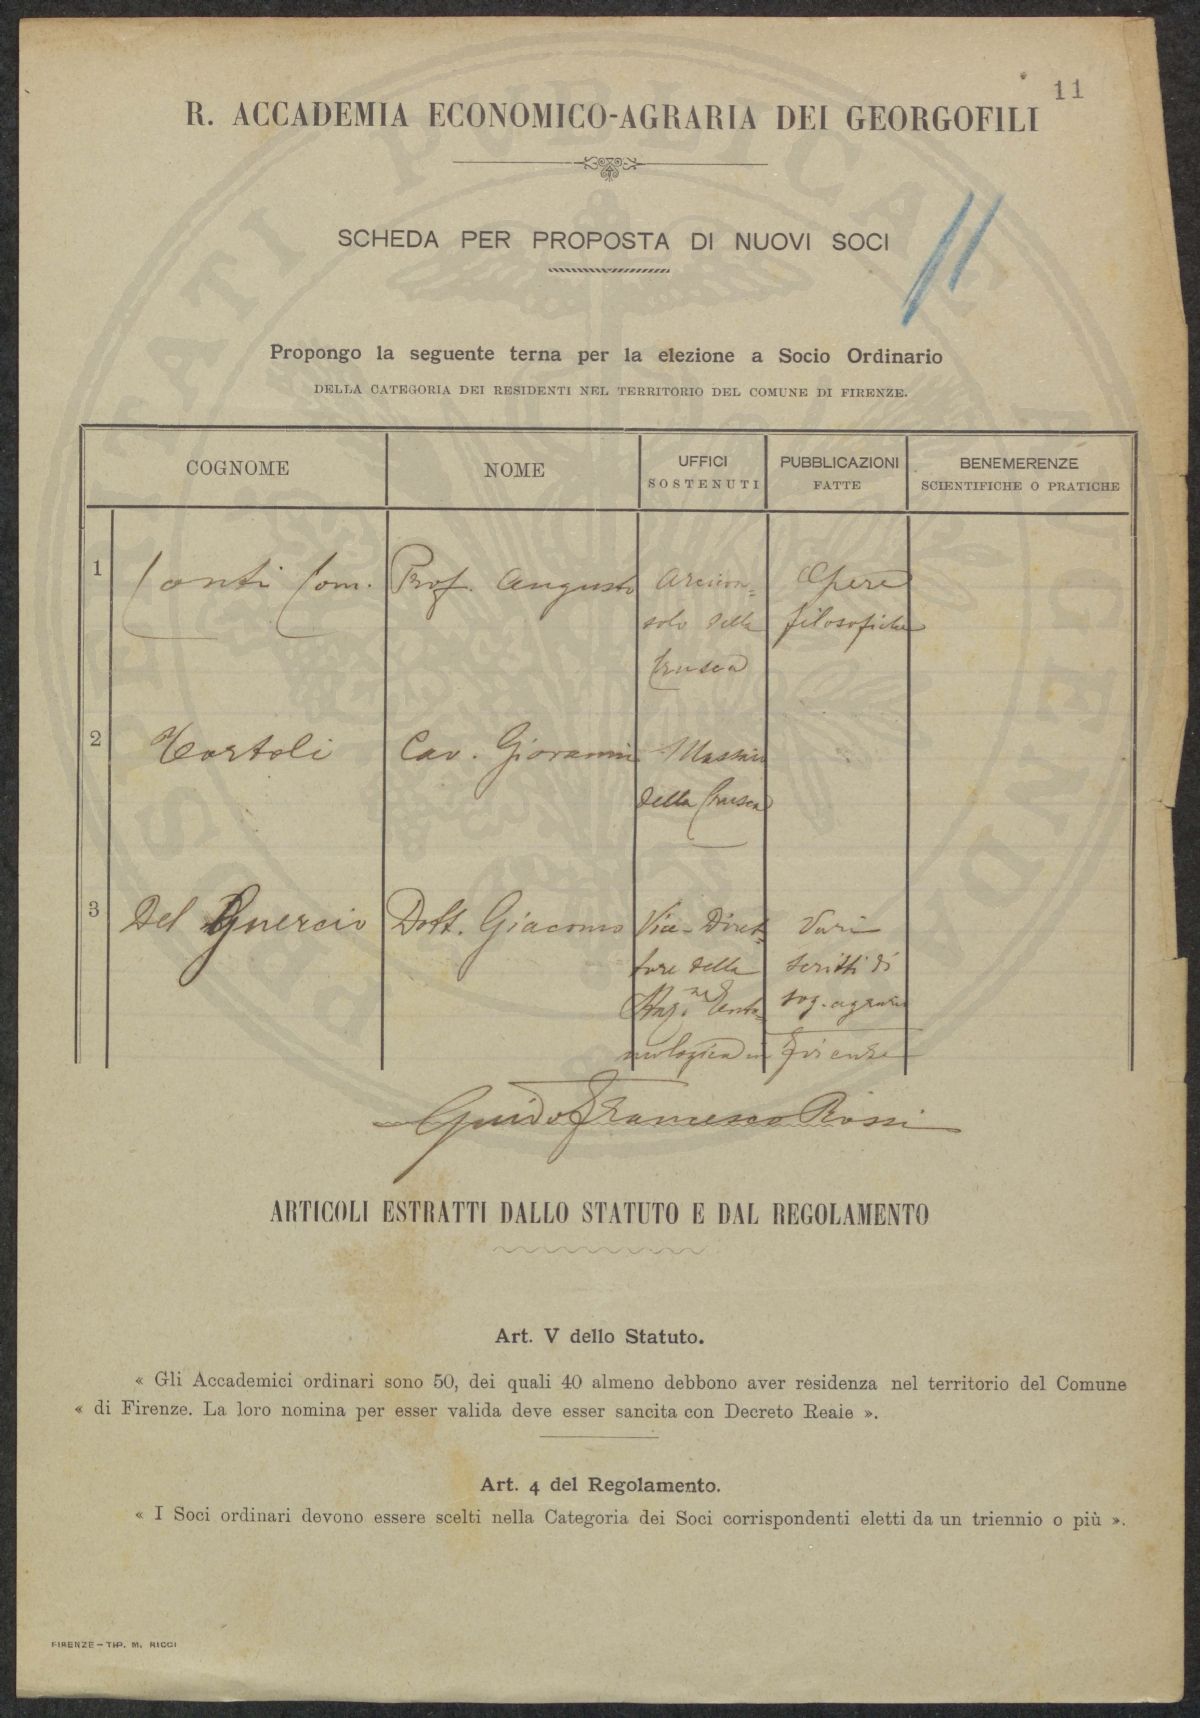 11
R. ACCADEMIA ECONOMICO-AGRARIA DEI GEORGOFILI
SCHEDA PER PROPOSTA DI NUOVI SOCI
11
Propongo la seguente terna per la elezione a Socio Ordinario
DELLA CATEGORIA DEI RESIDENTI NEL TERRITORIO DEL COMUNE DI FIRENZE.
COGNOME NOME UFFICI SOSTENUTI PUBBLICAZIONI FATTE BENEMERENZE SCIENTIFICHE O PRATICHE
1 Conti Com. Prof. Augusto Arcicon= Opere
solo della filosofiche
Crusca
2 Tortoli Cav. Giovanni Massaio
della Crusca
3 Del Guercio Dott. Giacomo Vice-Diret= Vari
tore della scritti di
Staz.ne Ento= sog. agrario
mologica in Firenze
Guido Francesco Rossi
ARTICOLI ESTRATTI DALLO STATUTO E DAL REGOLAMENTO
Art. V dello Statuto.
« Gli Accademici ordinari sono 50, dei quali 40 almeno debbono aver residenza nel territorio del Comune
« di Firenze. La loro nomina per esser valida deve esser sancita con Decreto Reale ».
Art. 4 del Regolamento.
« I Soci ordinari devono essere scelti nella Categoria dei Soci corrispondenti eletti da un triennio o più ».
FIRENZE – TIP. M. RICCI
PROSPERITATI PUBLICAE AUGENDAE